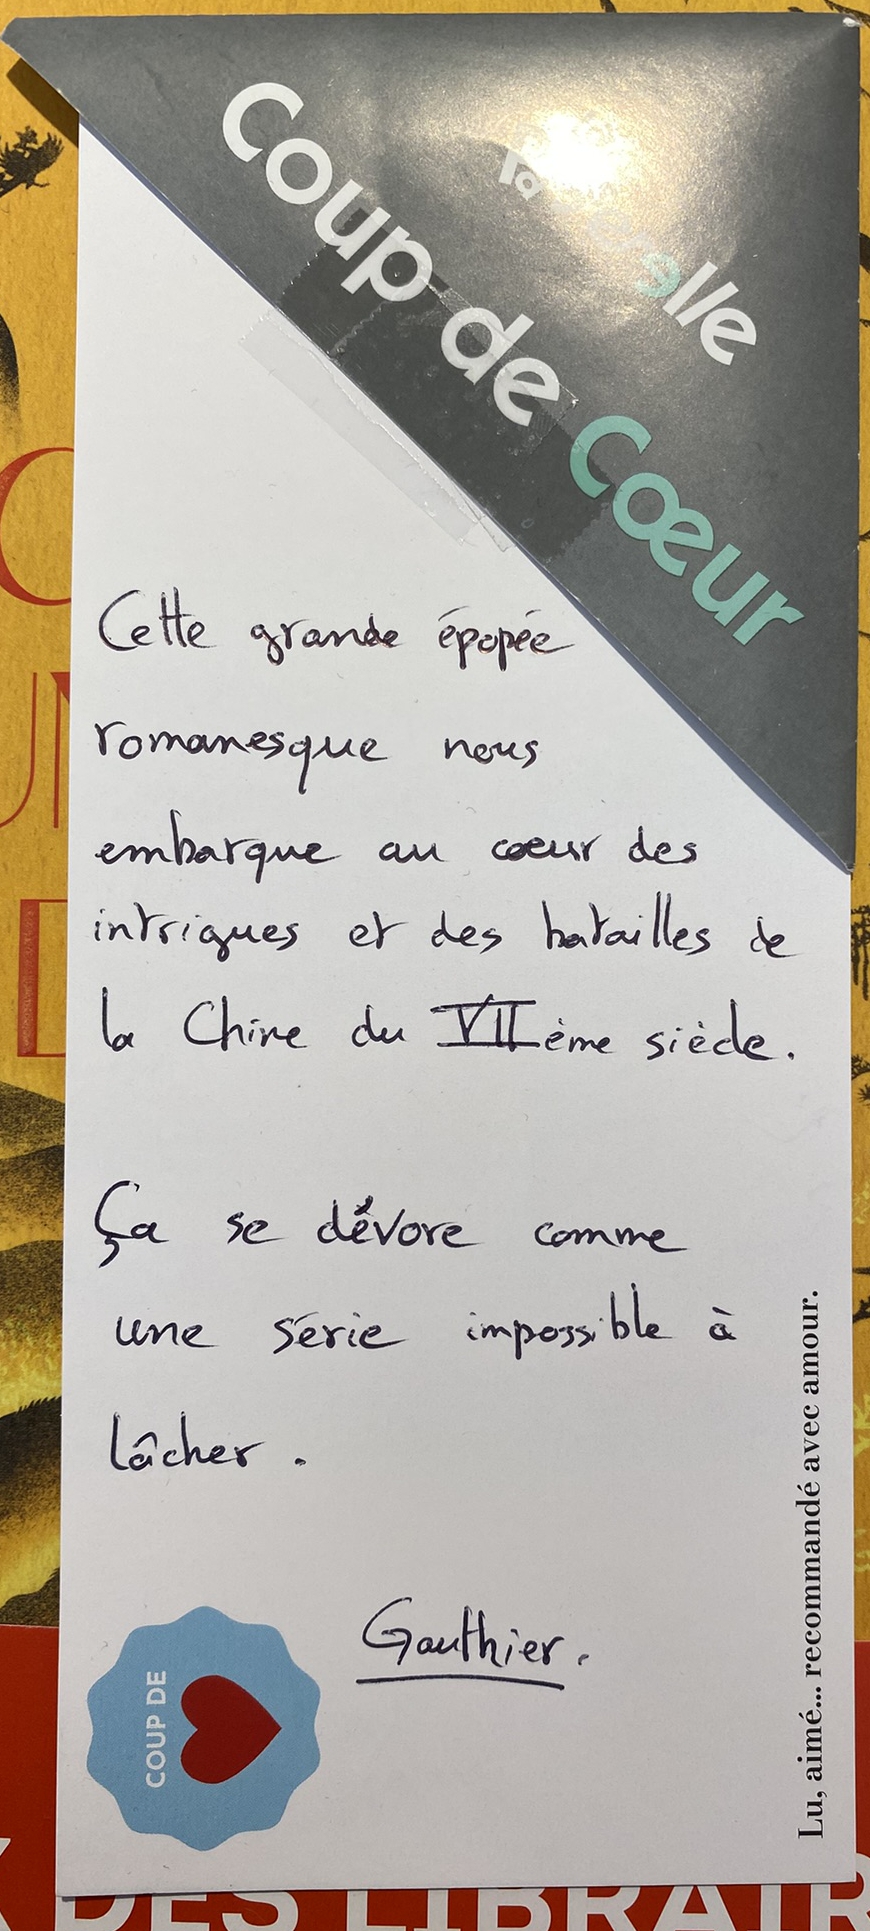 Coup de Cœur
Cette grande épopée
romanesque nous
embarque au cœur des
intrigues et des batailles de
la Chine du VIIème siècle.
Ça se dévore comme
une série impossible à
lâcher.
Gauthier.
COUP DE
Lu, aimé... recommandé avec amour.
DES LIBRAIR